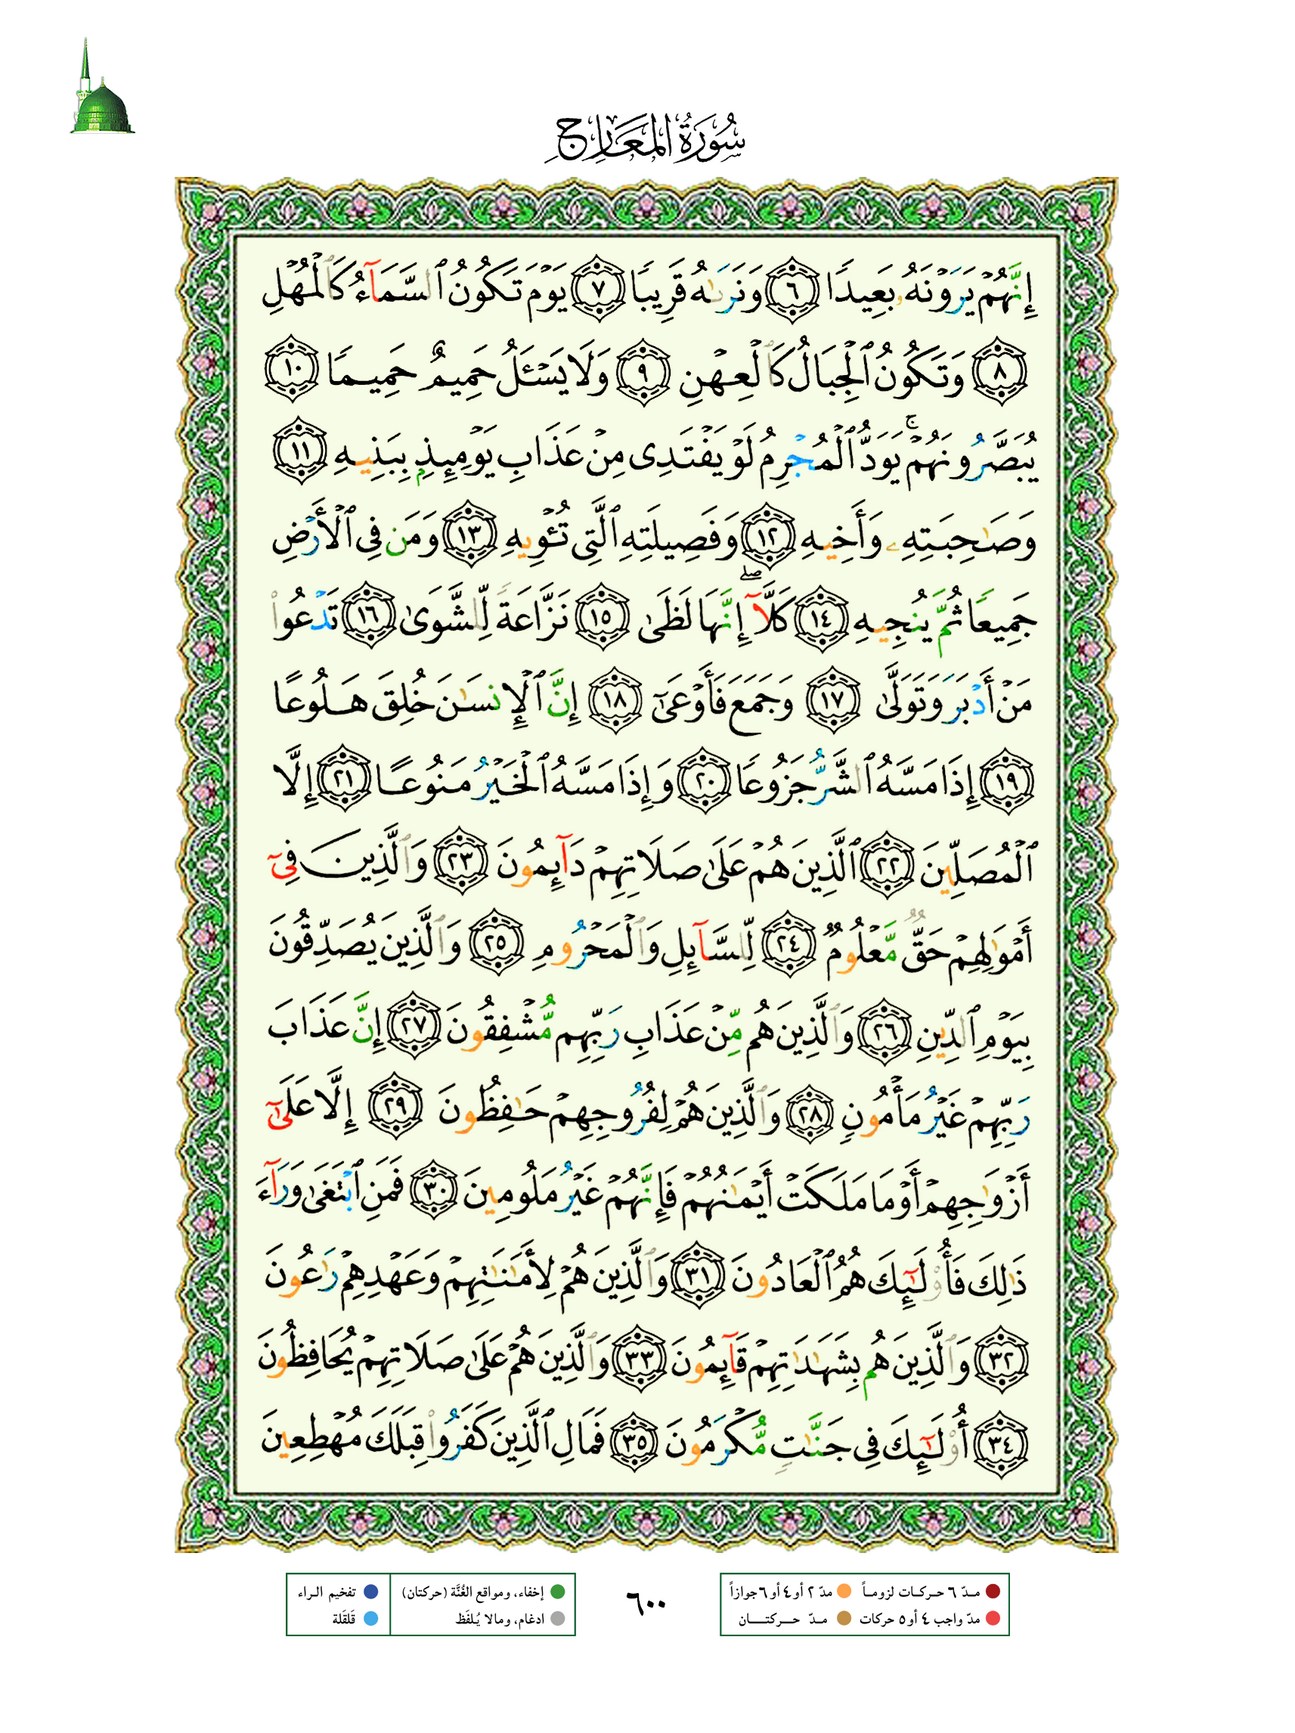 سُورَةُ المَعَارِج
إِنَّهُمۡ يَرَوۡنَهُۥ بَعِيدٗا ٦ وَنَرَىٰهُ قَرِيبٗا ٧ يَوۡمَ تَكُونُ ٱلسَّمَآءُ كَٱلۡمُهۡلِ
٨ وَتَكُونُ ٱلۡجِبَالُ كَٱلۡعِهۡنِ ٩ وَلَا يَسۡـَٔلُ حَمِيمٌ حَمِيمٗا ١٠
يُبَصَّرُونَهُمۡۚ يَوَدُّ ٱلۡمُجۡرِمُ لَوۡ يَفۡتَدِي مِنۡ عَذَابِ يَوۡمِئِذِۭ بِبَنِيهِ ١١
وَصَٰحِبَتِهِۦ وَأَخِيهِ ١٢ وَفَصِيلَتِهِ ٱلَّتِي تُـٔۡوِيهِ ١٣ وَمَن فِي ٱلۡأَرۡضِ
جَمِيعٗا ثُمَّ يُنجِيهِ ١٤ كَلَّآۖ إِنَّهَا لَظَىٰ ١٥ نَزَّاعَةٗ لِّلشَّوَىٰ ١٦ تَدۡعُواْ
مَنۡ أَدۡبَرَ وَتَوَلَّىٰ ١٧ وَجَمَعَ فَأَوۡعَىٰٓ ١٨ إِنَّ ٱلۡإِنسَٰنَ خُلِقَ هَلُوعًا
١٩ إِذَا مَسَّهُ ٱلشَّرُّ جَزُوعٗا ٢٠ وَإِذَا مَسَّهُ ٱلۡخَيۡرُ مَنُوعًا ٢١ إِلَّا
ٱلۡمُصَلِّينَ ٢٢ ٱلَّذِينَ هُمۡ عَلَىٰ صَلَاتِهِمۡ دَآئِمُونَ ٢٣ وَٱلَّذِينَ فِيٓ
أَمۡوَٰلِهِمۡ حَقّٞ مَّعۡلُومٞ ٢٤ لِّلسَّآئِلِ وَٱلۡمَحۡرُومِ ٢٥ وَٱلَّذِينَ يُصَدِّقُونَ
بِيَوۡمِ ٱلدِّينِ ٢٦ وَٱلَّذِينَ هُم مِّنۡ عَذَابِ رَبِّهِم مُّشۡفِقُونَ ٢٧ إِنَّ عَذَابَ
رَبِّهِمۡ غَيۡرُ مَأۡمُونٖ ٢٨ وَٱلَّذِينَ هُمۡ لِفُرُوجِهِمۡ حَٰفِظُونَ ٢٩ إِلَّا عَلَىٰٓ
أَزۡوَٰجِهِمۡ أَوۡ مَا مَلَكَتۡ أَيۡمَٰنُهُمۡ فَإِنَّهُمۡ غَيۡرُ مَلُومِينَ ٣٠ فَمَنِ ٱبۡتَغَىٰ وَرَآءَ
ذَٰلِكَ فَأُوْلَٰٓئِكَ هُمُ ٱلۡعَادُونَ ٣١ وَٱلَّذِينَ هُمۡ لِأَمَٰنَٰتِهِمۡ وَعَهۡدِهِمۡ رَٰعُونَ
٣٢ وَٱلَّذِينَ هُم بِشَهَٰدَٰتِهِمۡ قَآئِمُونَ ٣٣ وَٱلَّذِينَ هُمۡ عَلَىٰ صَلَاتِهِمۡ يُحَافِظُونَ
٣٤ أُوْلَٰٓئِكَ فِي جَنَّٰتٖ مُّكۡرَمُونَ ٣٥ فَمَالِ ٱلَّذِينَ كَفَرُواْ قِبَلَكَ مُهۡطِعِينَ
مـدّ ٦ حـركـات لزومـاً مدّ ٢ أو ٤ أو ٦ جوازاً
مدّ واجب ٤ أو ٥ حركات مـدّ حــركتــــان
٦٠٠
إخفاء، ومواقع الغُنَّة (حركتان) تفخيم الـراء
ادغام، ومالا يُـلفَظ قَلقَلة